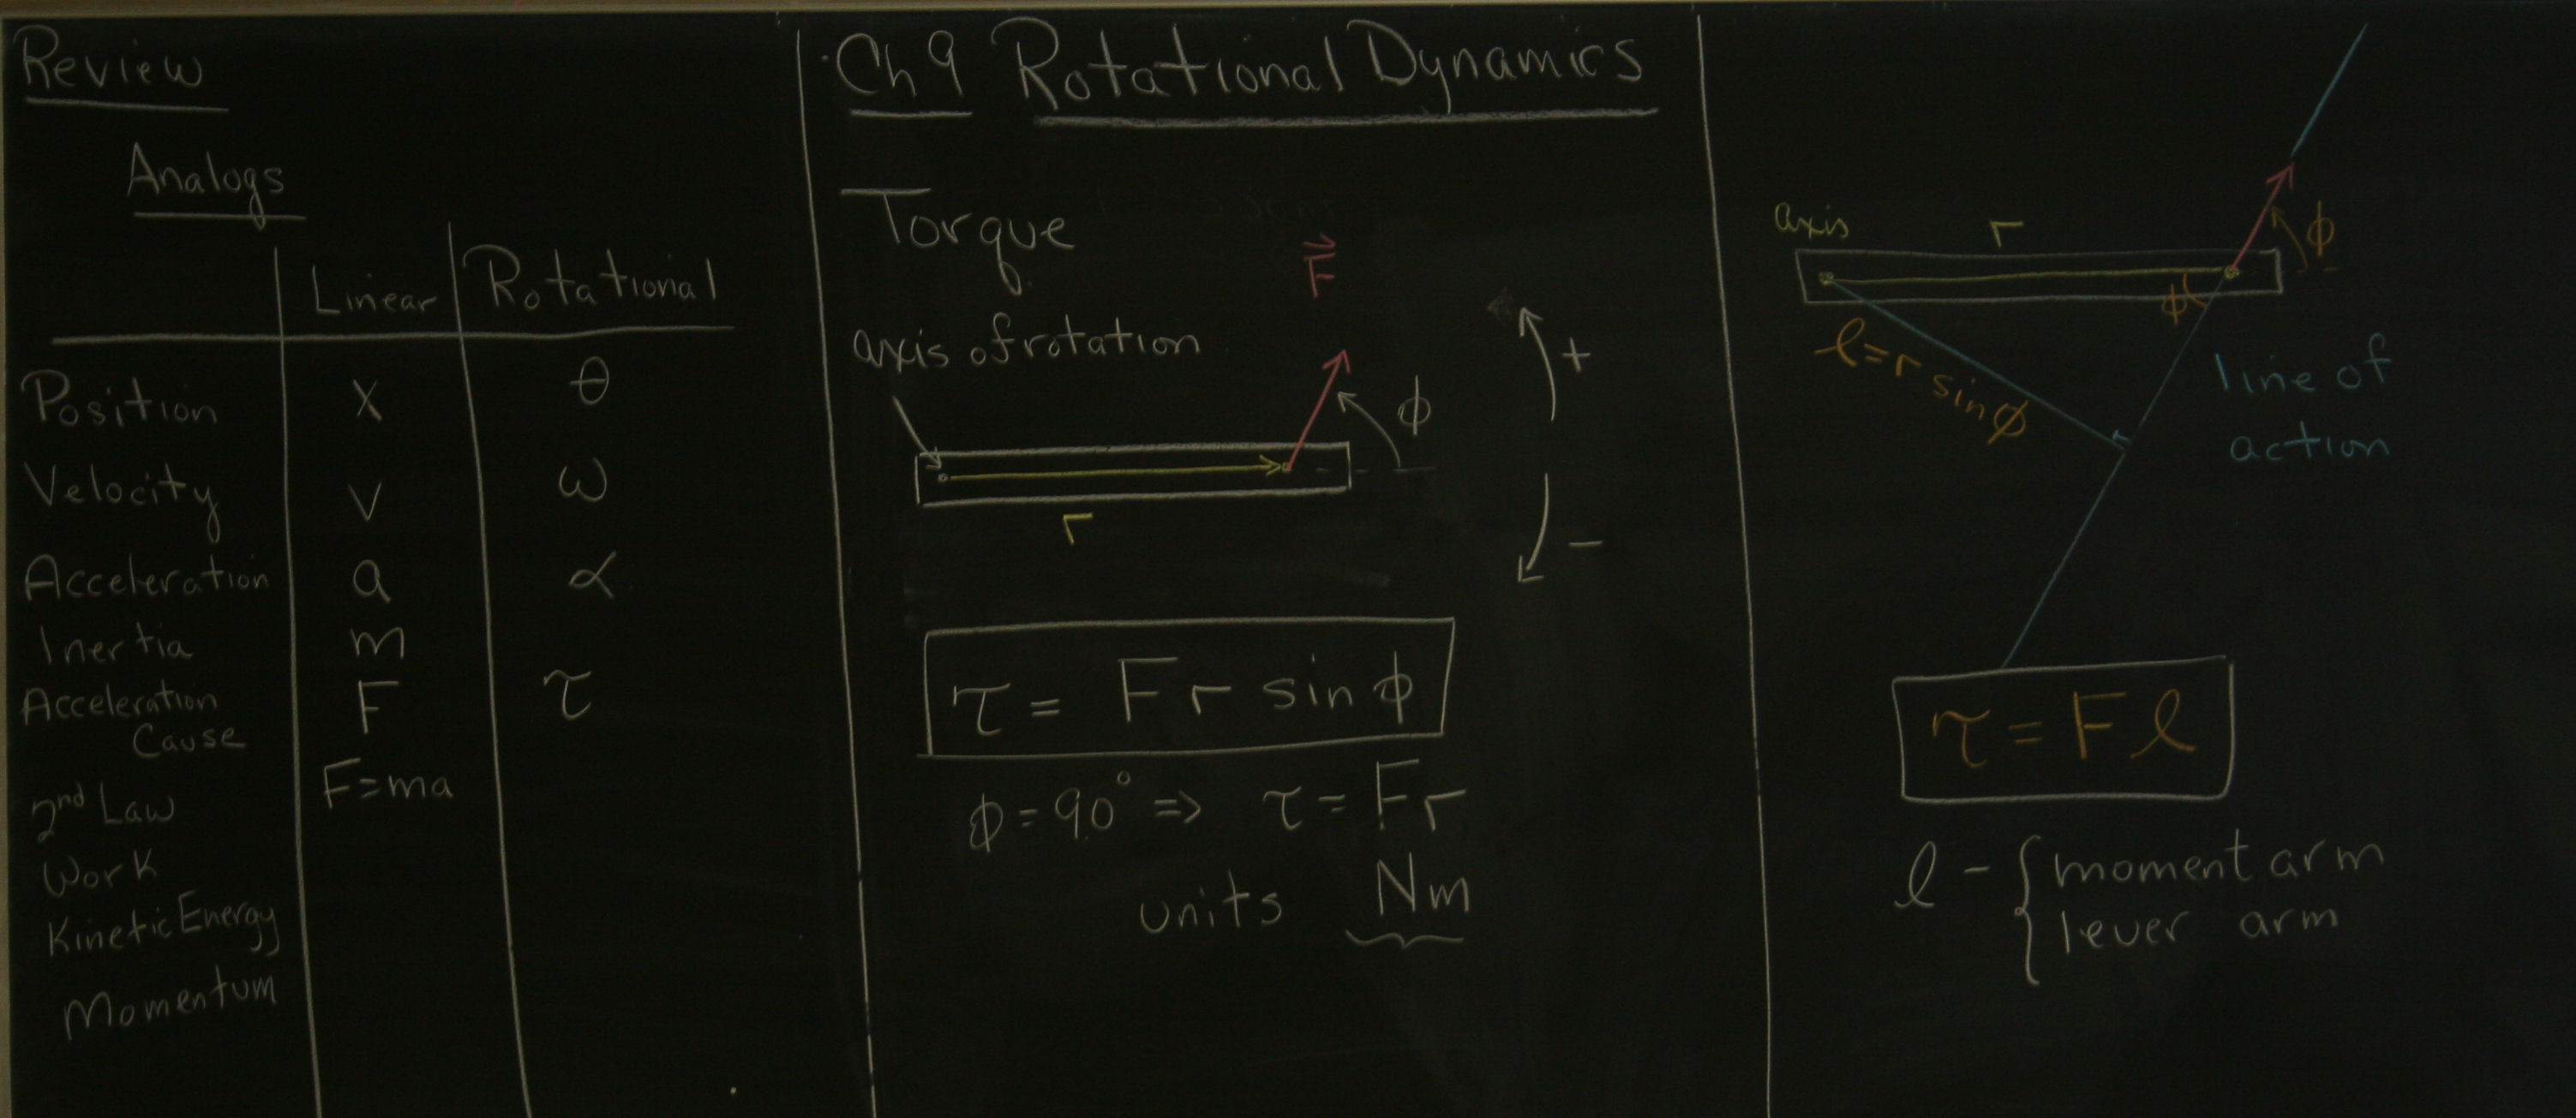 Review
Analogs
Linear Rotational
Position x θ
Velocity v ω
Acceleration a α
Inertia m
Acceleration Cause F τ
2nd Law F=ma
Work
Kinetic Energy
Momentum
Ch 9 Rotational Dynamics
Torque
F⃗
axis of rotation
ϕ
+
r
−
τ = F r sin ϕ
ϕ = 90° ⇒ τ = F r
units Nm
axis
r
ϕ
ϕ
l = r sin ϕ
line of
action
τ = F l
l - { moment arm
lever arm